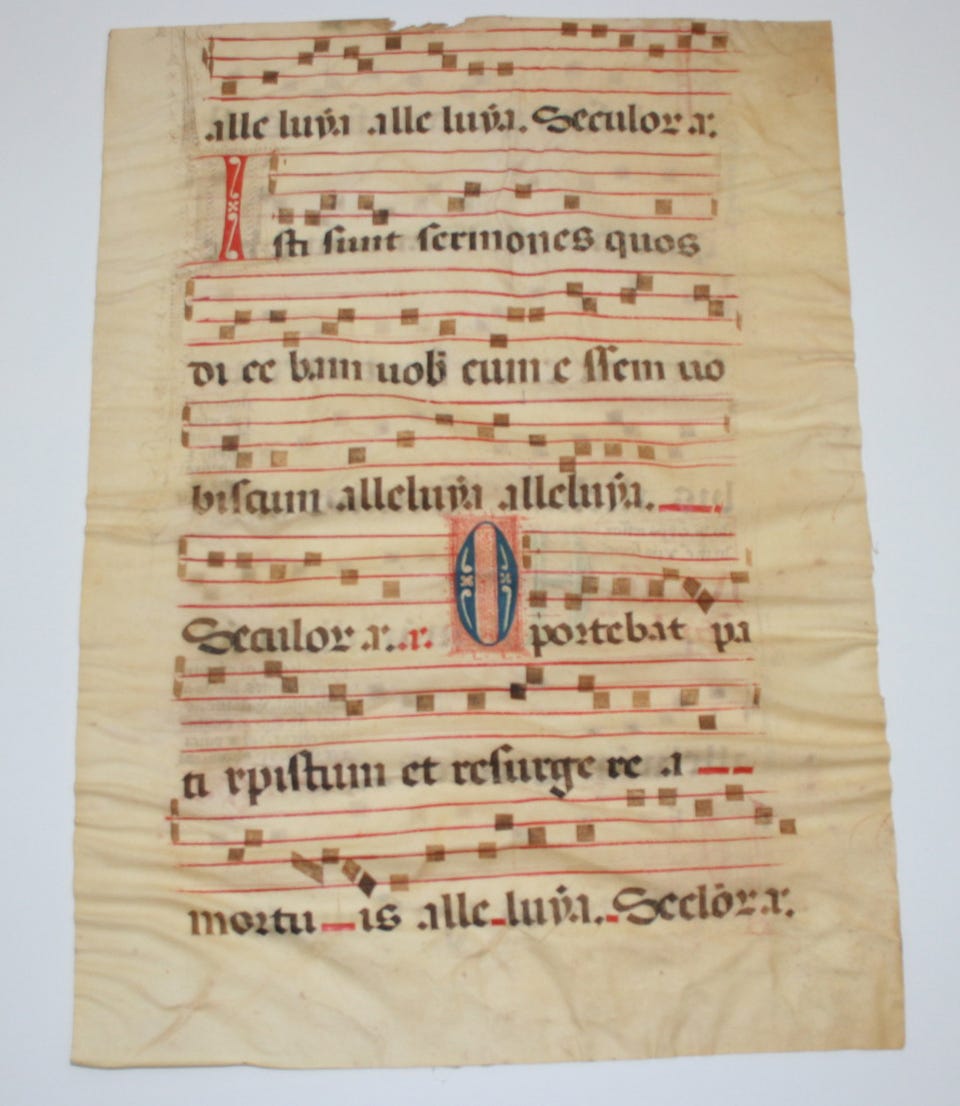 alle luỹa alle luỹa. Seculor a.
Isti sunt sermones quos
di ce bam uob̃ cum e ssem uo
biscum alleluỹa alleluỹa.
Seculor a. a. Oportebat pa
ti xpistum et resurge re a
mortu is alle luỹa. Seclõr a.